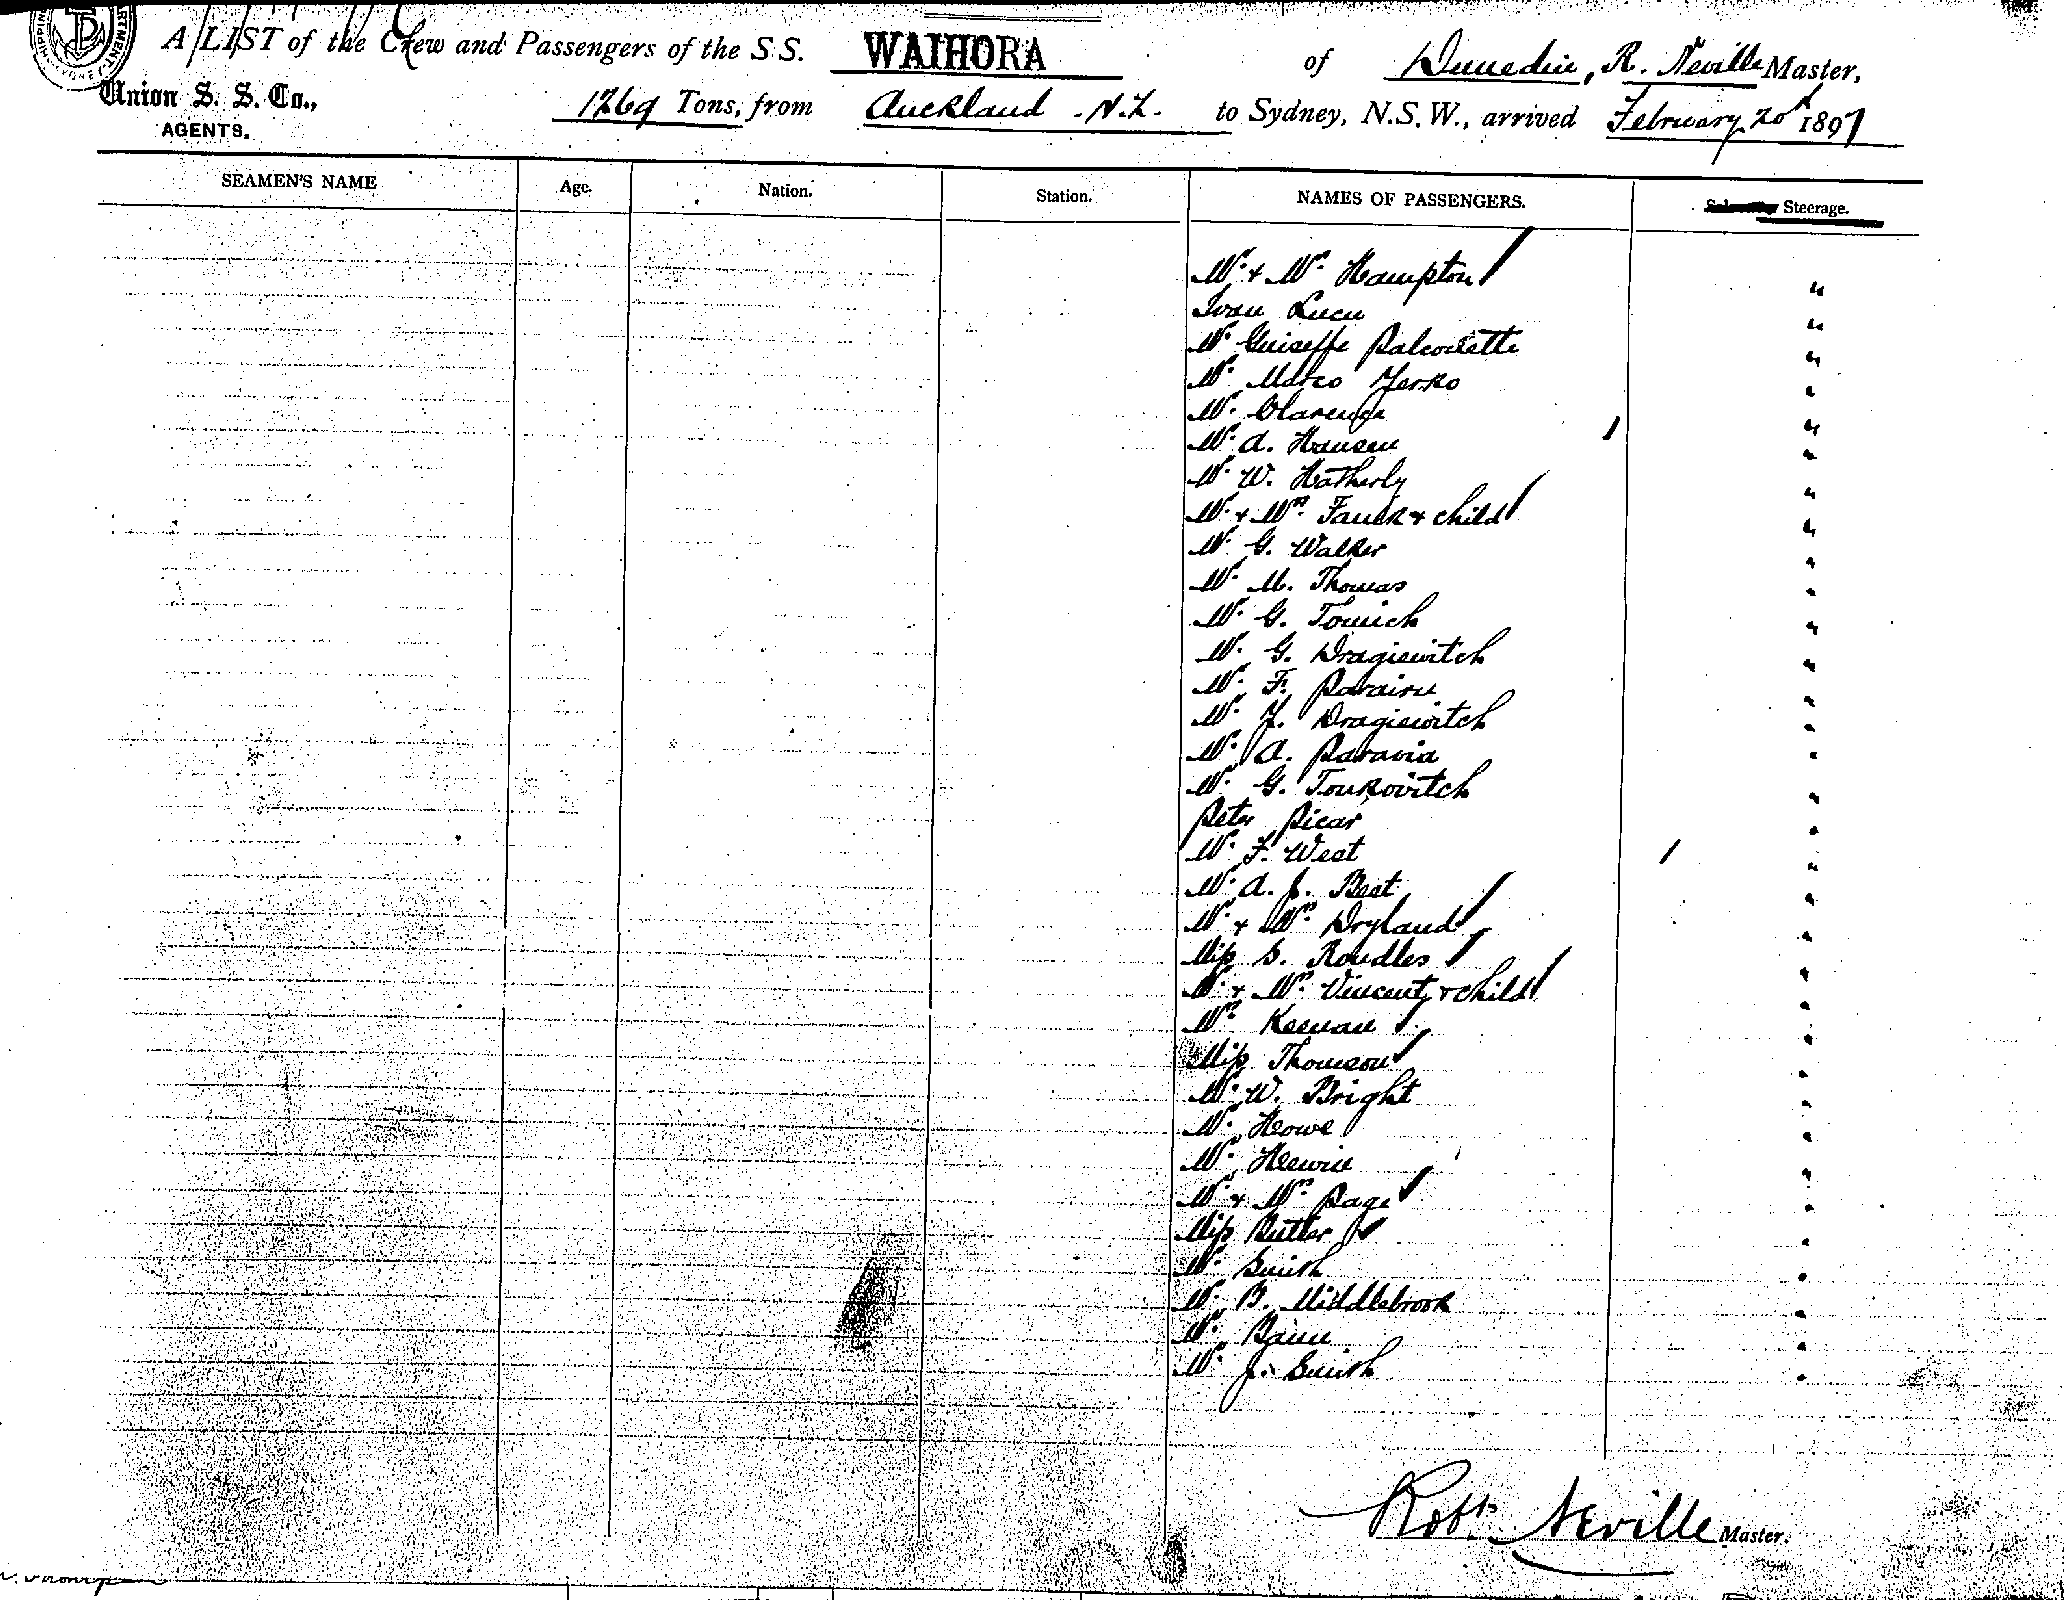 A LIST of the Crew and Passengers of the S.S. WAIHORA of Dunedin, R. Neville Master,
Union S. S. Co.,
AGENTS.
1269 Tons, from Auckland N.Z. to Sydney, N.S.W., arrived February 20th 1897
SEAMEN'S NAME Age. Nation. Station. NAMES OF PASSENGERS. Steerage.
Mr & Mrs Hampton "
Ivan Lucu "
Mr Guiseffe "
Mr Marco Jerko "
Mr Clarence "
Mr A. Hansen "
Mr W. Hatherly "
Mr & Mrs & child "
Mr G. Walker "
Mr M. Thomas "
Mr G. Tomich "
Mr G. Dragiewitch "
Mr F. "
Mr J. Dragiewitch "
Mr A. Paravia "
Mr G. Tonkovitch "
Peter Picar "
Mr F. West "
Mr A. J. Best "
Mr & Mrs Dryland "
Miss S. "
Mr & Mrs Vincent & child "
Mrs Keenan "
Miss Thomson "
Mr W. Bright "
Mr Howe "
Mr "
Mr & Mrs Page "
Miss Butler "
Mr Smith "
Mr B. Middlebrook "
Mr "
Mr J. Smith "
Robt. Neville Master.